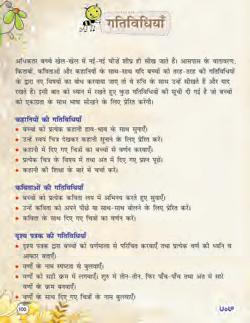 गतिविधियाँ
अधिकतर बच्चे खेल-खेल में नई-नई चीज़ें शीघ्र ही सीख जाते हैं। आसपास के वातावरण,
किताबों, कविताओं और कहानियों के साथ-साथ यदि बच्चों को तरह-तरह की गतिविधियों
के द्वारा नए विषयों का बोध करवाया जाता है तो वे रुचि के साथ उन्हें सीखते हैं और याद
रखते हैं। इसी बात को ध्यान में रखते हुए कुछ गतिविधियों की सूची दी गई है जो बच्चों
को एकाग्रता के साथ भाषा सीखने के लिए प्रेरित करेंगी।
कहानियों की गतिविधियाँ
बच्चों को प्रत्येक कहानी हाव-भाव के साथ सुनाएँ।
उन्हें स्वयं चित्र देखकर कहानी सुनाने के लिए प्रेरित करें।
कहानी में दिए गए चित्रों का बच्चों से वर्णन करवाएँ।
प्रत्येक चित्र के विषय में तथा अंत में दिए गए प्रश्न पूछें।
कहानी की शिक्षा के बारे में चर्चा करें।
कविताओं की गतिविधियाँ
बच्चों को प्रत्येक कविता लय में अभिनय करते हुए सुनाएँ।
उन्हें कविता को अपने पीछे या साथ-साथ बोलने के लिए प्रेरित करें।
कविता के साथ दिए गए चित्रों का वर्णन करें।
दृश्य पत्रक की गतिविधियाँ
दृश्य पत्रक द्वारा बच्चों को वर्णमाला से परिचित करवाएँ तथा प्रत्येक वर्ण की ध्वनि व
आकार बताएँ।
वर्णों के नाम स्पष्टता से बुलवाएँ।
वर्णों को सही क्रम में लगवाएँ। शुरू में तीन-तीन, फिर पाँच-पाँच तथा अंत में सारे
वर्णों के क्रम बनवाएँ।
वर्णों के साथ दिए गए चित्रों के नाम बुलवाएँ।
100